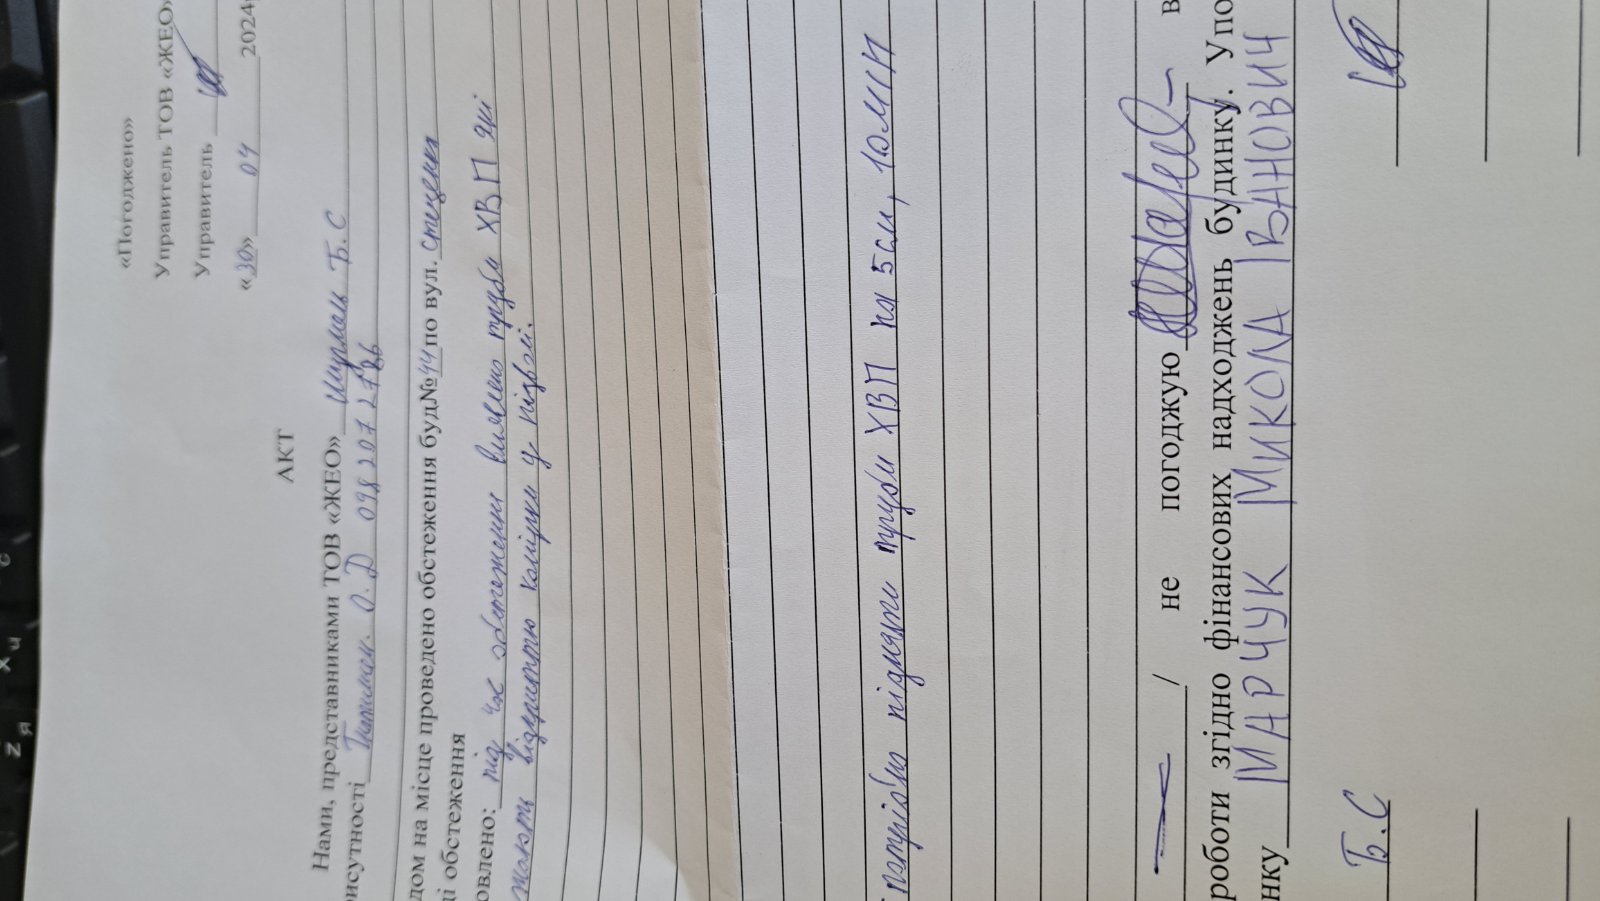 «Погоджено»
Управитель ТОВ «ЖЕО»
Управитель
«30» 04 2024
АКТ
Нами, представниками ТОВ «ЖЕО» Б.С
исутності О.Д 098 207 2786
дом на місце проведено обстеження буд№44 по вул.
ці обстеження
овлено: під час обстеження виявлено труби ХВП які
мають відкриттю комірки у підвалі.
потрібно підняти труби ХВП на 5см, 10МП
/ не погоджую в
роботи згідно фінансових надходжень будинку. Упо
нку МАРЧУК МИКОЛА ІВАНОВИЧ
Б.С